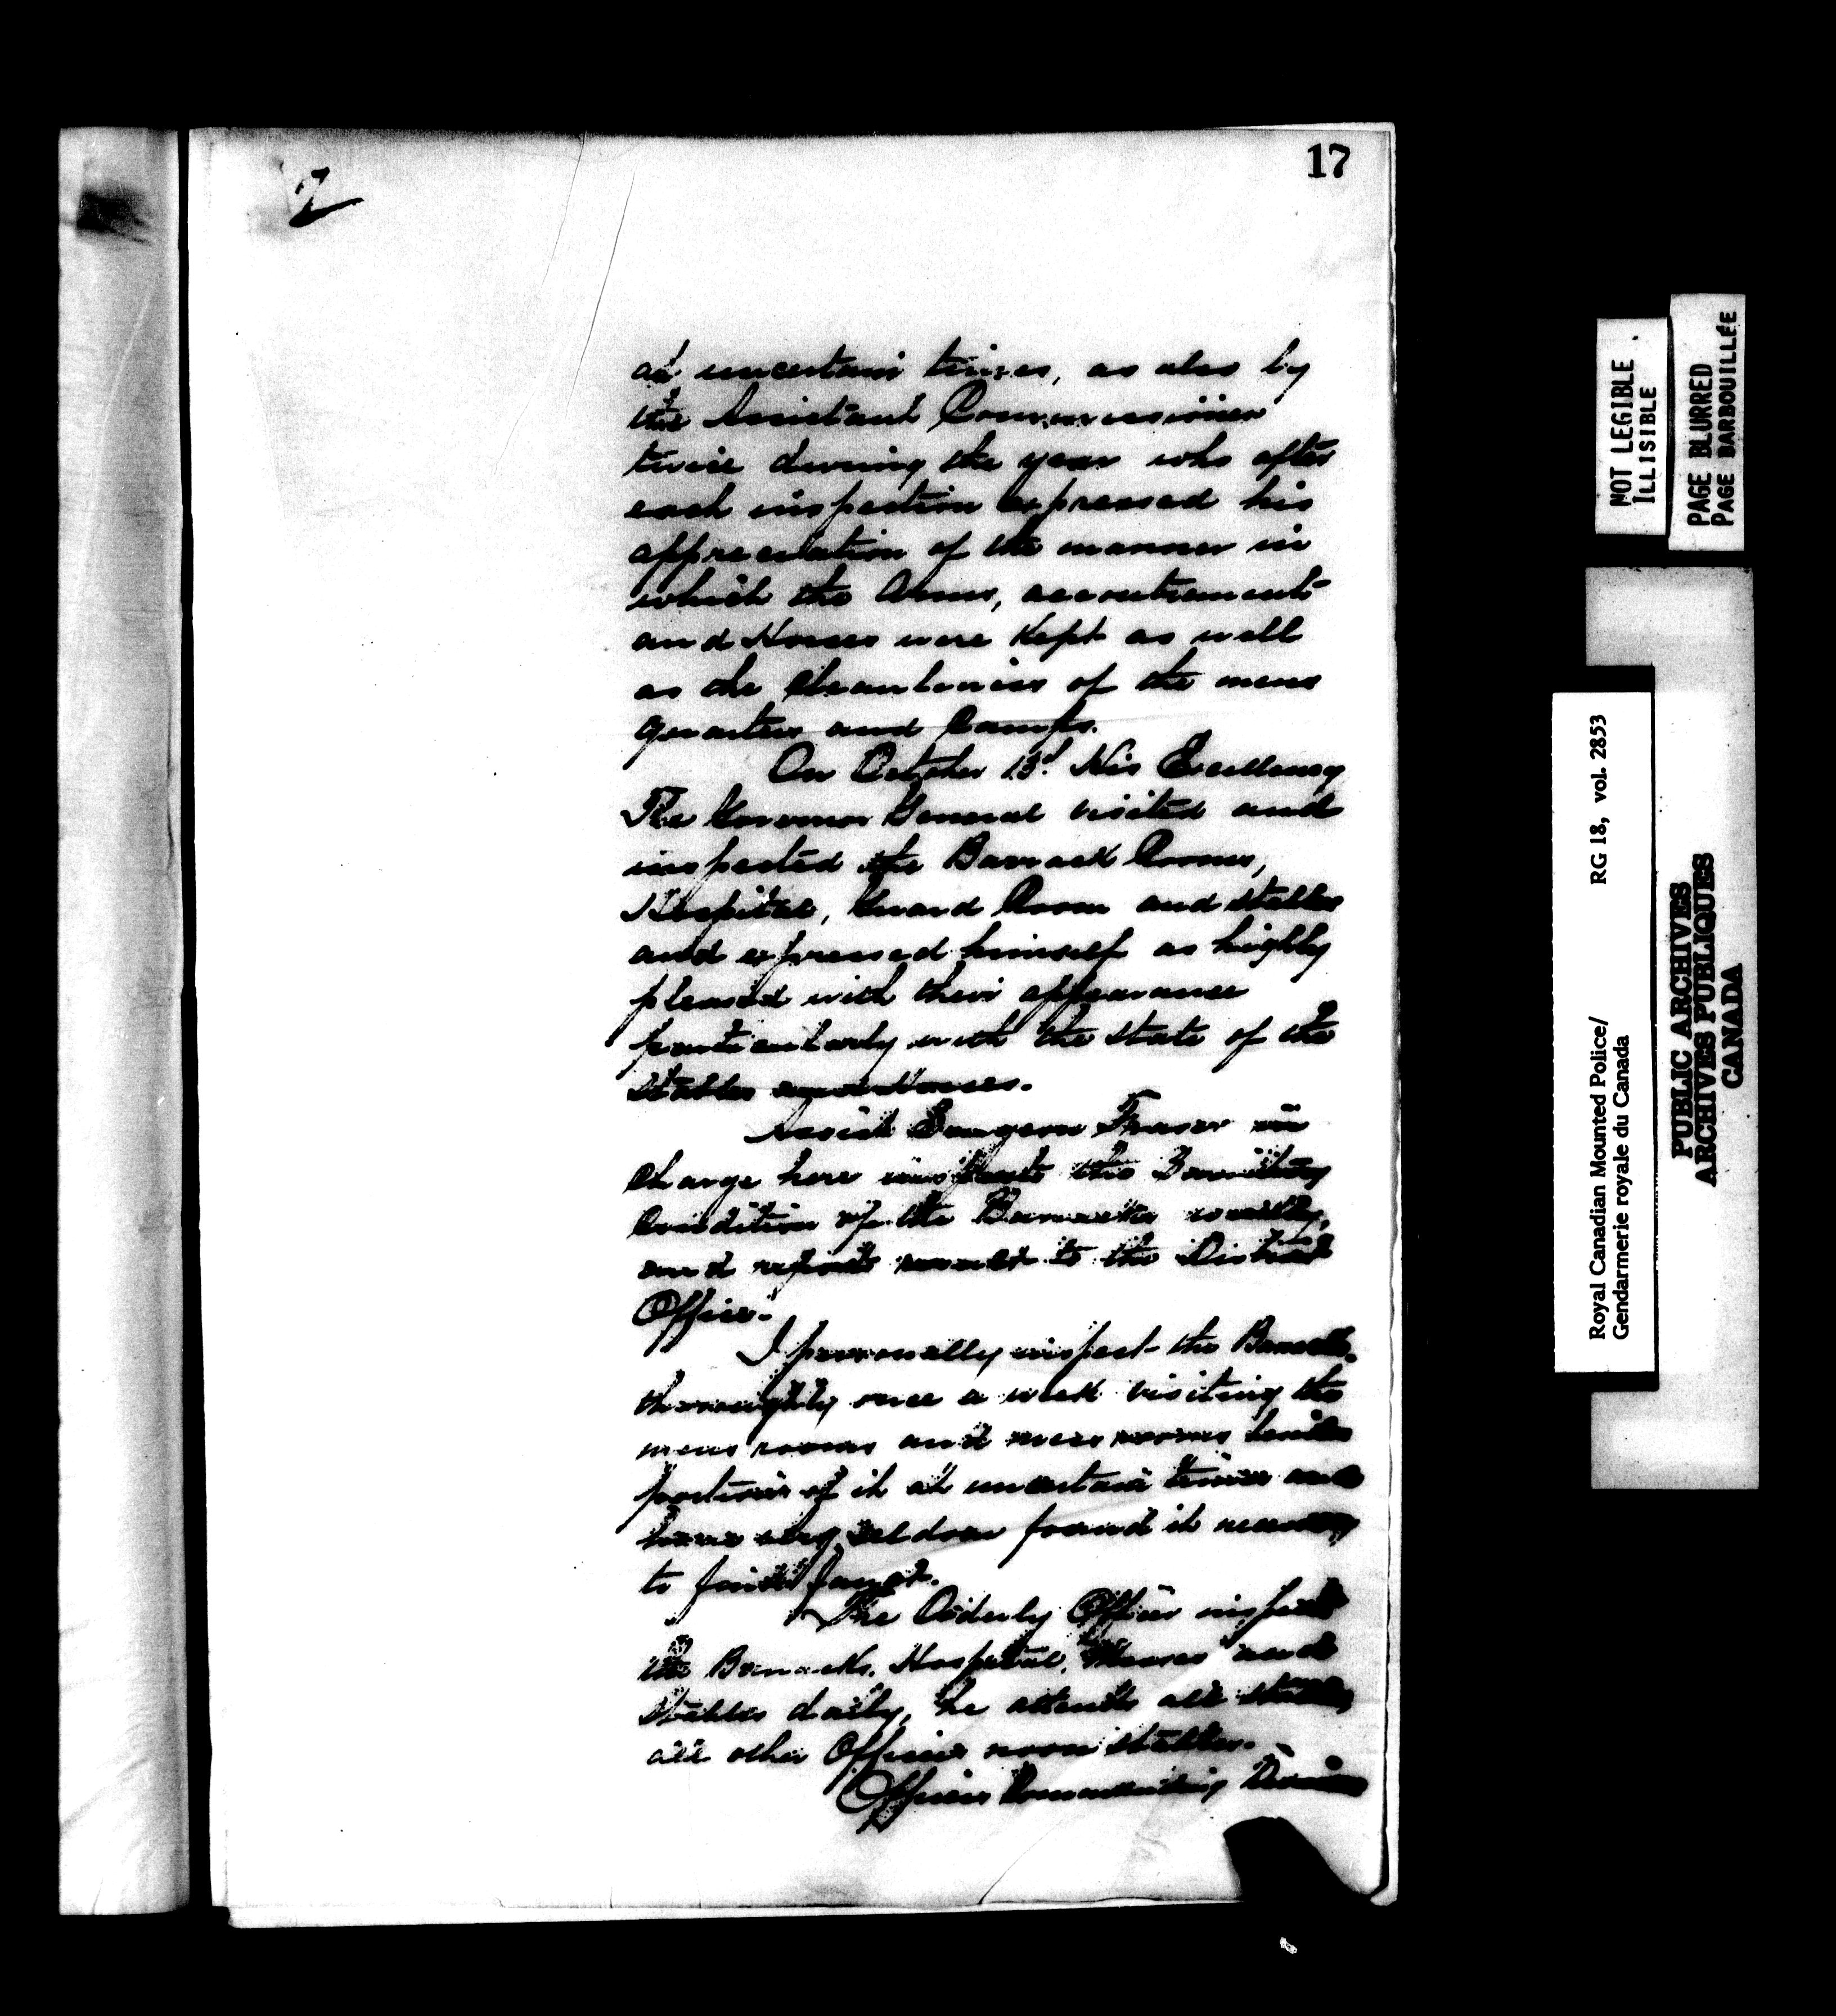 17
2
at uncertain times, as also by
the Assistant Commissioner
twice during the year who after
each inspection expressed his
appreciation of the manner in
which the Arms, accoutrement
and Horses were kept as well
as the cleanliness of the mens
quarters and Camps.
On October 13th His Excellency
The Governor General visited and
inspected the Barrack Rooms,
Hospital, Guard Room and stables
and expressed himself as highly
pleased with their appearance
particularly with the state of the
Stables and Horses.
Assist Surgeon Fraser in
charge here inspects the Sanitary
Condition of the Barracks weekly,
and reports to the District
Office.
I personally inspect the Barracks
thoroughly once a week visiting the
mens rooms and mess rooms besides
portions of it at uncertain times and
have very seldom found it necessary
to find fault.
The Orderly Officer inspects
the Barracks, Hospital, Messes and
Stables daily, he attends all stables,
all other Officers noon stables.
Officers Commanding Division
NOT LEGIBLE
ILLISIBLE
PAGE BLURRED
PAGE BARBOUILLÉE
Royal Canadian Mounted Police/ RG 18, vol. 2853
Gendarmerie royale du Canada
PUBLIC ARCHIVES
ARCHIVES PUBLIQUES
CANADA